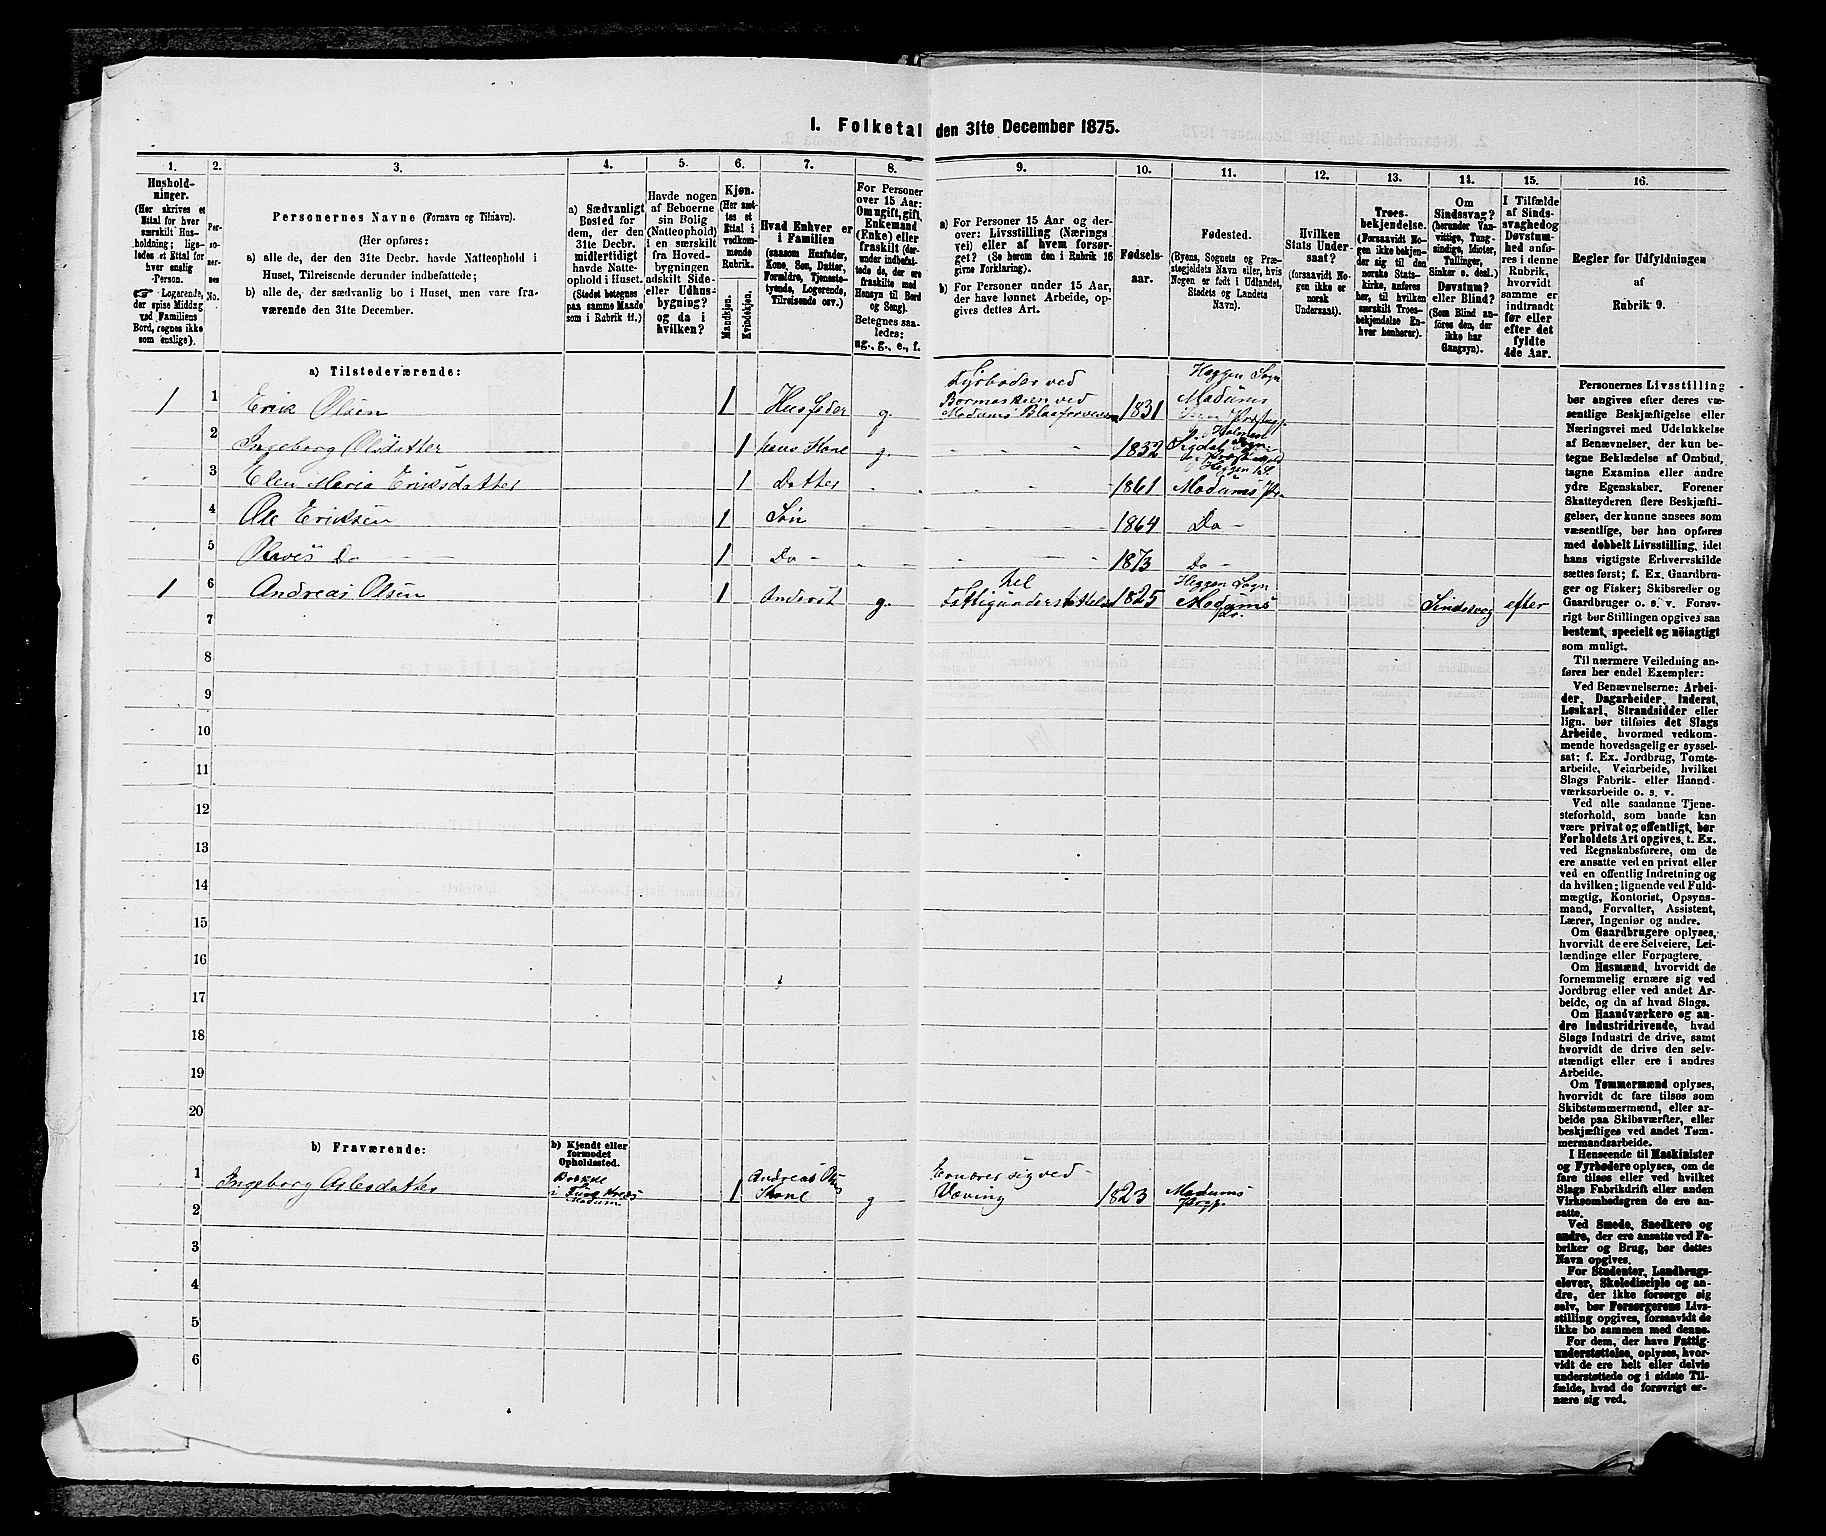 1. Folketal den 31te December 1875.
1.
2.
3.
4.
5.
6.
7.
8.
9.
10.
11.
12.
13.
14.
15.
16.
Hushold-
ninger.
(Her skrives et
Ettal for hver
særskilt Hus-
holdning; lige-
ledes et Ettal for
hver enslig
Person.
☞ Logerende,
der spise Middag
ved Familiens
Bord, regnes ikke
som enslige).
Per-
so-
ner-
nes
No.
Personernes Navne (Fornavn og Tilnavn).
(Her opføres:
a) alle de, der den 31te Decbr. havde Natteophold i
Huset, Tilreisende derunder indbefattede;
b) alle de, der sædvanlig bo i Huset, men vare fra-
værende den 31te December.
a) Sædvanligt
Bosted for
dem, der den
31te Decbr.
midlertidigt
havde Natte-
ophold i Huset.
(Stedet betegnes
paa samme Maade
som i Rubrik 11.)
Havde nogen
af Beboerne
sin Bolig
(Natteophold)
i en særskilt
fra Hoved-
bygningen
adskilt Side-
eller Udhus-
bygning?
og da i
hvilken?
Kjøn.
(Her sæt-
tes et
Ettal i
vedkom-
mende
Rubrik.
Mandkjøn.
Kvindekjøn.
Hvad Enhver er
i Familien
(saasom Husfader,
Kone, Søn, Datter,
Forældre, Tjeneste-
tyende, Logerende,
Tilreisende osv.)
For Personer
over 15 Aar:
Om ugift, gift,
Enkemand
(Enke) eller
fraskilt (der-
under indbefat-
tede de, der ere
fraskilte med
Hensyn til Bord
og Seng).
Betegnes saa-
ledes:
ug., g., e., f.
a) For Personer 15 Aar og der-
over: Livsstilling (Nærings
vei) eller af hvem forsør-
get? (Se herom den i Rubrik 16
givne Forklaring).
b) For Personer under 15 Aar,
der have lønnet Arbeide, op-
gives dettes Art.
Fødsels-
aar.
Fødested.
(Byens, Sognets og Præ-
stegjeldets Navn eller, hvis
Nogen er født i Udlandet,
Stedets og Landets
Navn).
Hvilken
Stats Under-
saat?
(forsaavidt No-
gen ikke er
norsk
Undersaat).
Troes-
bekjendelse.
(Forsaavidt No-
gen ikke bekjen-
der sig til den
norske Stats-
kirke, anføres
her, til hvilken
særskilt Troes-
bekjendelse En-
hver henhører).
Om
Sindssvag?
(herunder Van-
vittige, Tung-
sindige, Idioter,
Tullinger,
Sinker o. desl.)
Døvstum?
eller Blind?
(Som Blind an-
føres den, der
ikke har
Gangsyn).
I Tilfælde
af Sinds-
svaghed og
Døvstum-
hed anfø-
res i denne
Rubrik,
hvorvidt
samme er
indtraadt
før eller
efter det
fyldte
4de Aar.
Regler for Udfyldningen
af
Rubrik 9.
a) Tilstedeværende:
1 1 Erik Olsen 1 Husfader g. Fyrbøder ved Bormaskien ved Modums Blaafarveværk 1831 Heggen Sogn Modums
2 Ingeborg Olsdatter 1 hans Kone g 1832 Sigdal
3 Elen Maria Eriksdatter 1 Datter 1861 Heggen Modums Pr.
4 Ole Eriksen 1 Søn 1864 Do
5 Do 1 Do 1873 Do
1 6 Andreas Olsen 1 Inderst g. hel Fattigunderstøttelse 1825 Heggen Sogn Modums Pr. Sindssvag efter
7
8
9
10
11
12
13
14
15
16
17
18
19
20
b) Fraværende:
b) Kjendt eller
formodet
Opholdssted.
1 Ingeborg Aslesdatter i Modum 1 Andreas Ols Kone g Ernærer sig ved Væving 1823 Modums Prgj.
2
3
4
5
6
Personernes Livsstilling
bør angives efter deres væ-
sentlige Beskjæftigelse eller
Næringsvei med Udelukkelse
af Benævnelser, der kun be-
tegne Beklædelse af Ombud,
tagne Examina eller andre
ydre Egenskaber. Forener
Skatteyderen flere Beskjæfti-
gelser, der kunne ansees som
væsentlige, bør han opføres
med dobbelt Livsstilling, idet
hans vigtigste Erhvervskilde
sættes først; f. Ex. Gaardbru-
ger og Fisker; Skibsreder og
Gaardbruger o. s. v. Forøv-
rigt bør Stillingen opgives saa
bestemt, specielt og nöiagtigt
som muligt.
Til nærmere Veiledning an-
føres her endel Exempler:
Ved Benævnelserne: Arbei-
der, Dagarbeider, Inderst,
Løskarl, Strandsidder eller
lign. bør tilføies det Slags
Arbeide, hvormed vedkom-
mende hovedsagelig er syssel-
sat; f. Ex. Jordbrug, Tomte-
arbeide, Veiarbeide, hvilket
Slags Fabrik- eller Haand-
værksarbeide o. s. v.
Ved alle saadanne Tjene-
steforhold, som baade kan
være privat og offentligt, bør
Forholdets Art opgives, t. Ex.
ved Regnskabsførere, om de
ere ansatte ved en privat eller
ved en offentlig Indretning og
da hvilken; lignende ved Fuld-
mægtig, Kontorist, Opsyns-
mand, Forvalter, Assistent,
Lærer, Ingeniør og andre.
Om Gaardbrugere oplyses,
hvorvidt de ere Selveiere, Lei-
lændinge eller Forpagtere.
Om Husmænd, hvorvidt de
fornemmelig ernære sig ved
Jordbrug eller ved andet Ar-
beide, og da af hvad Slags.
Om Haandværkere og an-
dre Industridrivende, hvad
Slags Industri de drive, samt
hvorvidt de drive den selv-
stændigt eller ere i andres
Arbeide.
Om Tømmermænd oplyses,
hvorvidt de fare tilsøs som
Skibstømmermænd, eller ar-
beide paa Skibsværfter, eller
beskjæftiges ved andet Tøm-
mermandsarbeide.
I Henseende til Maskinister
og Fyrbødere oplyses, om de
fare tilsøs eller ved hvilket
Slags Fabrikdrift eller anden
Virksomhedsgren de ere an-
satte.
Ved Smede, Snedkere og
andre, der ere ansatte ved Fa-
briker og Brug, bør dettes
Navn opgives.
For Studenter, Landbrugs-
elever, Skoledisciple og an-
dre, der ikke forsørge sig
selv, bør Forsørgerens Livs-
stilling opgives, forsaavidt de
ikke bo sammen med denne.
For dem, der have Fattig-
understøttelse, oplyses, hvor-
vidt de ere helt eller delvis
understøttede og i sidste Til-
fælde, hvad de forøvrigt er-
nære sig ved.